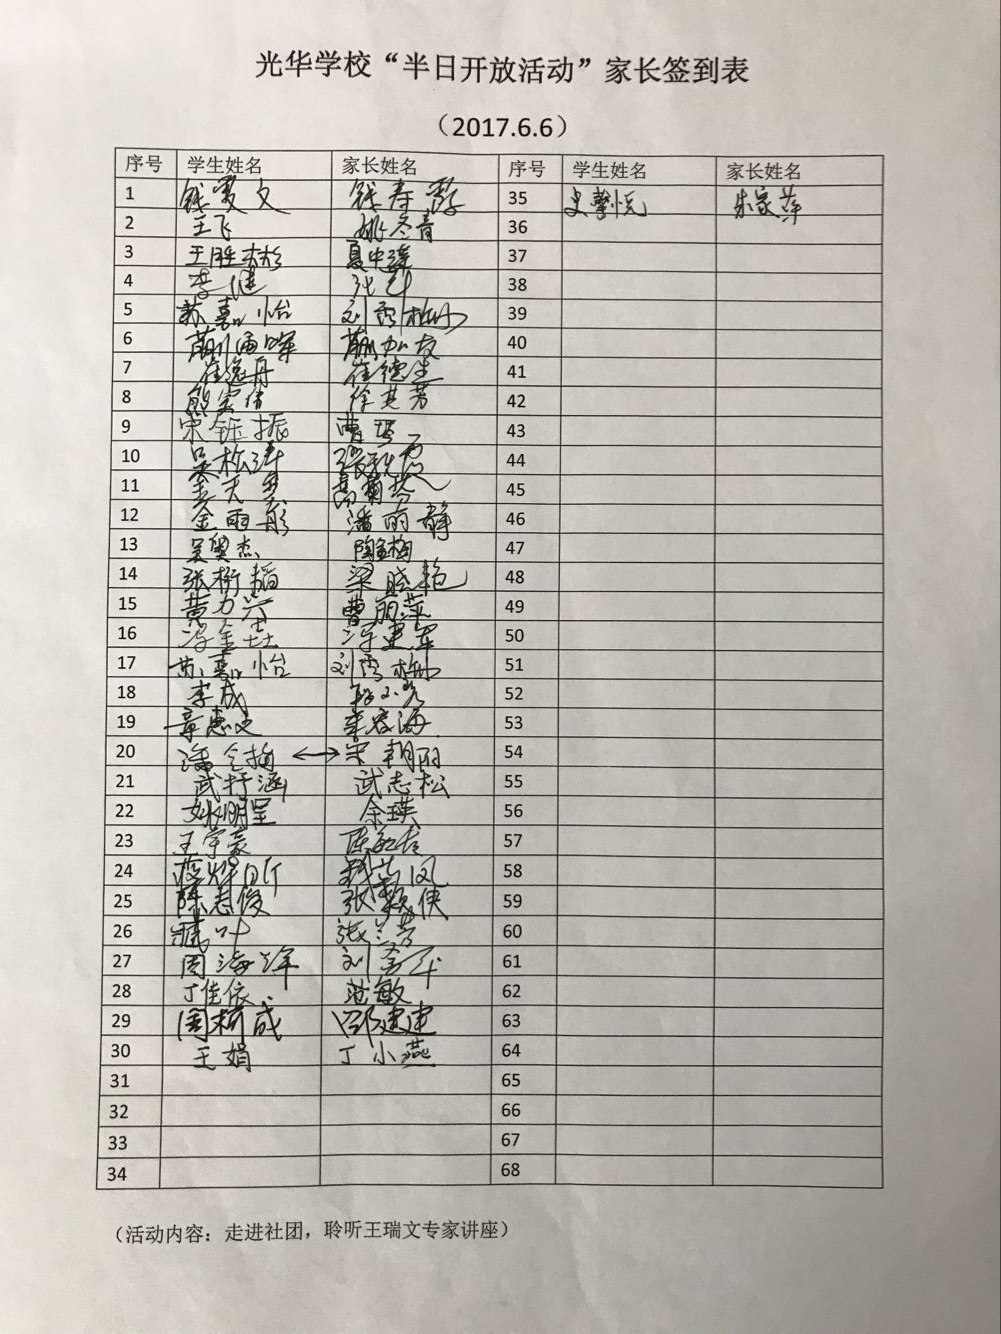 光华学校“半日开放活动”家长签到表
（2017.6.6）
序号 学生姓名 家长姓名 序号 学生姓名 家长姓名
1 钱 文 钱寿 35 史馨悦 朱家萍
2 王飞 姚冬青 36
3 王胜彬 夏中 37
4 李健 38
5 苏嘉怡 刘秀梅 39
6 40
7 崔逸丹 崔德生 41
8 熊 徐其芳 42
9 宋钰振 曹 43
10 吴松涛 张 44
11 45
12 金雨彤 潘丽静 46
13 吴 杰 陶 梅 47
14 张桁韬 梁晓艳 48
15 黄力 曹丽萍 49
16 冯金 冯建军 50
17 苏嘉怡 刘秀梅 51
18 李成 52
19 章 海 53
20 潘 ↔ 宋朝丽 54
21 武抒涵 武志松 55
22 姚明呈 余瑛 56
23 王宇豪 陈 57
24 凤 58
25 陈志俊 张颖侠 59
26 臧叶 张兰芳 60
27 周海洋 刘 61
28 丁佳依 范敏 62
29 周柯成 邵建建 63
30 王娟 丁小燕 64
31 65
32 66
33 67
34 68
（活动内容：走进社团，聆听王瑞文专家讲座）